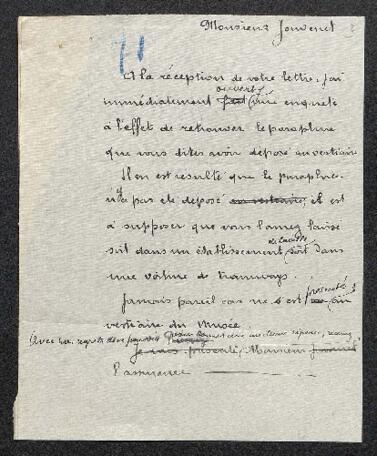 Monsieur Jouvenet
A la réception de votre lettre, j'ai
ouvert
immédiatement fait une enquête
à l'effet de retrouver le parapluie
que vous dites avoir déposé au vestiaire
Il en est résulté que le parapluie
n'a pas été déposé au vestiaire, il est
à supposer que vous l'aurez laissé
soit dans un établissement soit dans
une voiture de tramways.
Jamais pareil cas ne s'est présenté au
vestiaire du Musée.
Avec nos regrets de ne pouvoir
Monsieur
l'assurance